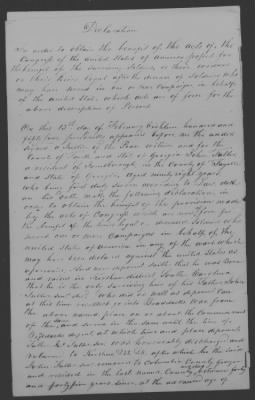 Declaration
In order to obtain the benefit of the acts of the
Congress of the United States of America passed for
the benefit of the men, Soldiers, or their widows
or their heirs legal after the decease of Soldiers who
may have served in one or more Campaigns in behalf
of the United States, which acts are of force for the
above description of Persons
On this 13th day of February Eighteen hundred and
fifty four personally appeared before me the under
signed a Justice of the Peace within and for the
County of and State of Georgia John Salter
a resident of Jonesborough in the County of Fayette
and State of Georgia Aged ninety eight years
who being first duly sworn according to Law doth
on his oath make the following declaration in
order to obtain the benefit of the provisions made
by the acts of Congress which are now of force for
the benefit of the heirs legal of deceased Soldiers who
served one or more Campaigns in behalf of the
United States of America in any of the wars which
may have been declared against the United States as
aforesaid. And now deponent saith that he was Born
and raised in District South Carolina
that he is the only surviving heir of his Father John
Salter Senr decd. Who did as well as deponent can
at this time recollect Braddocks War from
the above named place on or about the Commencement
of the same and served in the same until the time of
Braddocks defeat at which time and place deponents
Father Jno Salter Senr was honorably discharged and
returned to after which he the said
John Salter Senr removed to Columbia County Georgia
and resided in the last named County, between forty
and forty five years since, at the advanced age of